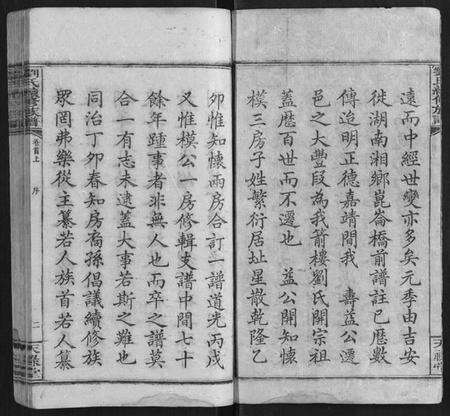 遠而中經世變亦多矣元季由吉安
徙湖南湘鄉崑崙橋前譜註已歷數
傳迨明正德嘉靖間我　壽益公遷
邑之大豐段為我箭樓劉氏開宗祖
蓋歷百世而不遷也　益公開知懷
模三房子姓繁衍居址星散乾隆乙
卯惟知懷兩房合訂一譜道光丙戌
又惟模公一房修輯支譜中間七十
餘年踵事者非無人也而卒之譜莫
合一有志未逮蓋大事若斯之難也
同治丁卯春知房裔孫倡議續修族
眾罔弗樂從主纂若人族首若人纂
劉氏續修族譜
卷首上
序
二